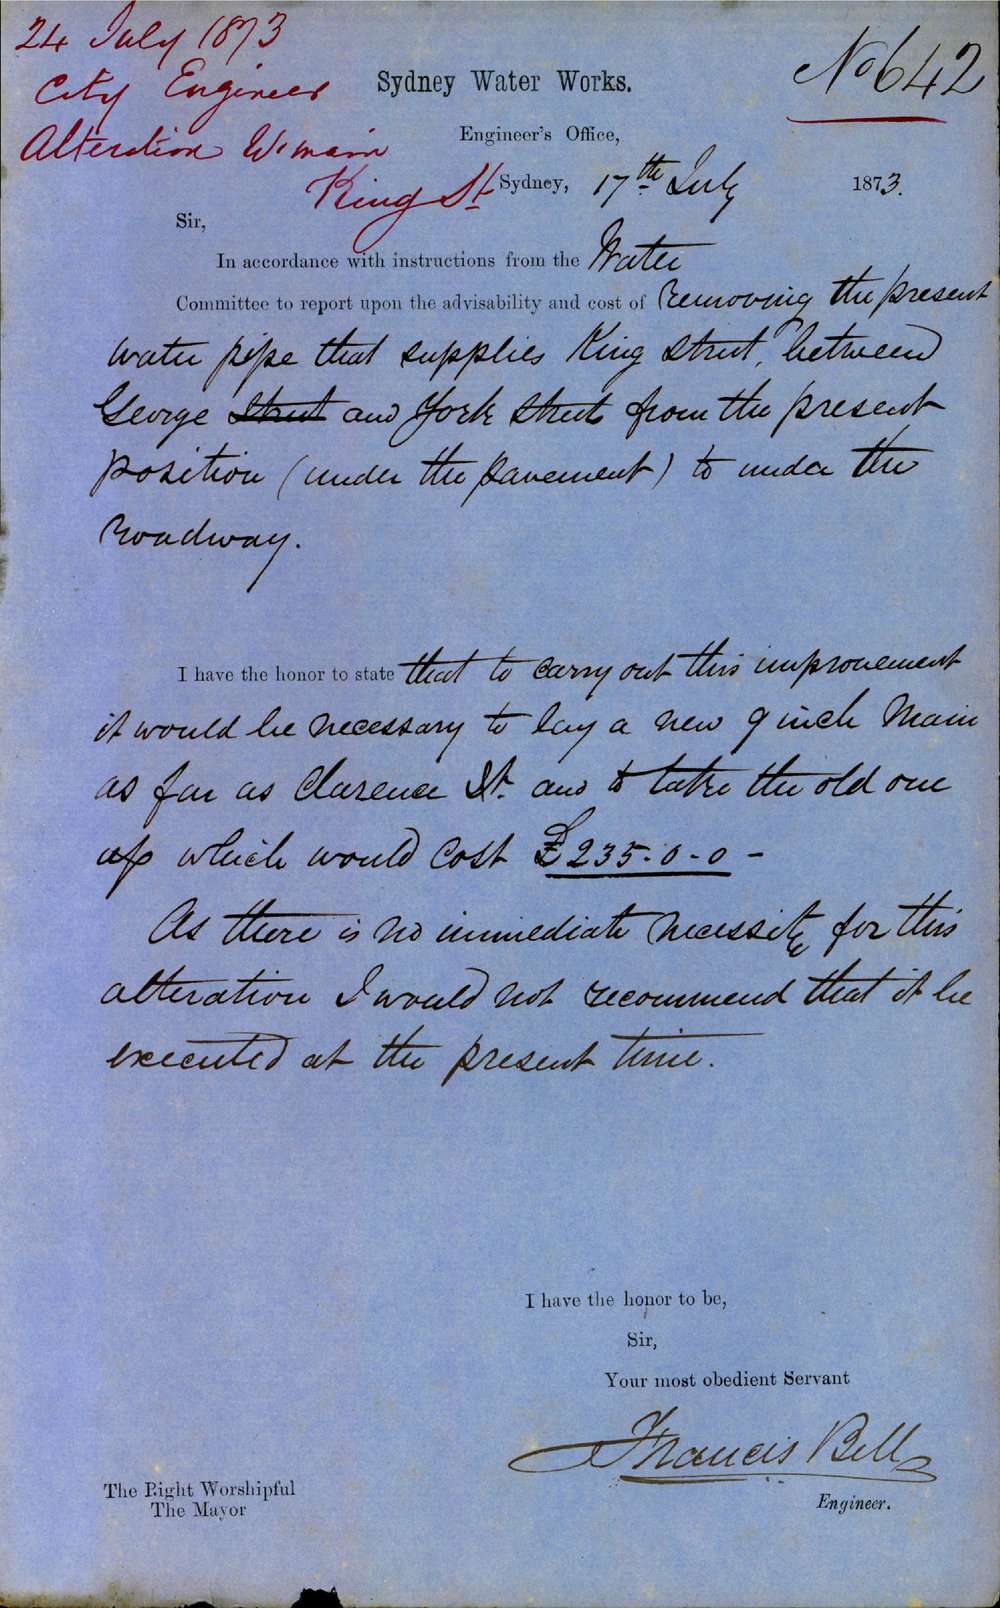 24 July 1873
City Engineer
Alteration W. main
King St
No 642
Sydney Water Works.
Engineer's Office,
Sydney, 17th July 1873.
Sir,
In accordance with instructions from the Water
Committee to report upon the advisability and cost of removing the present
water pipe that supplies King Street, between
George Street and York Street from the present
position (under the pavement) to under the
roadway.
I have the honor to state that to carry out this improvement
it would be necessary to lay a new 9 inch Main
as far as Clarence St. and to take the old one
up which would cost £235.0.0 -
As there is no immediate necessity for this
alteration I would not recommend that it be
executed at the present time.
I have the honor to be,
Sir,
Your most obedient Servant
Francis Bell
Engineer.
The Right Worshipful
The Mayor